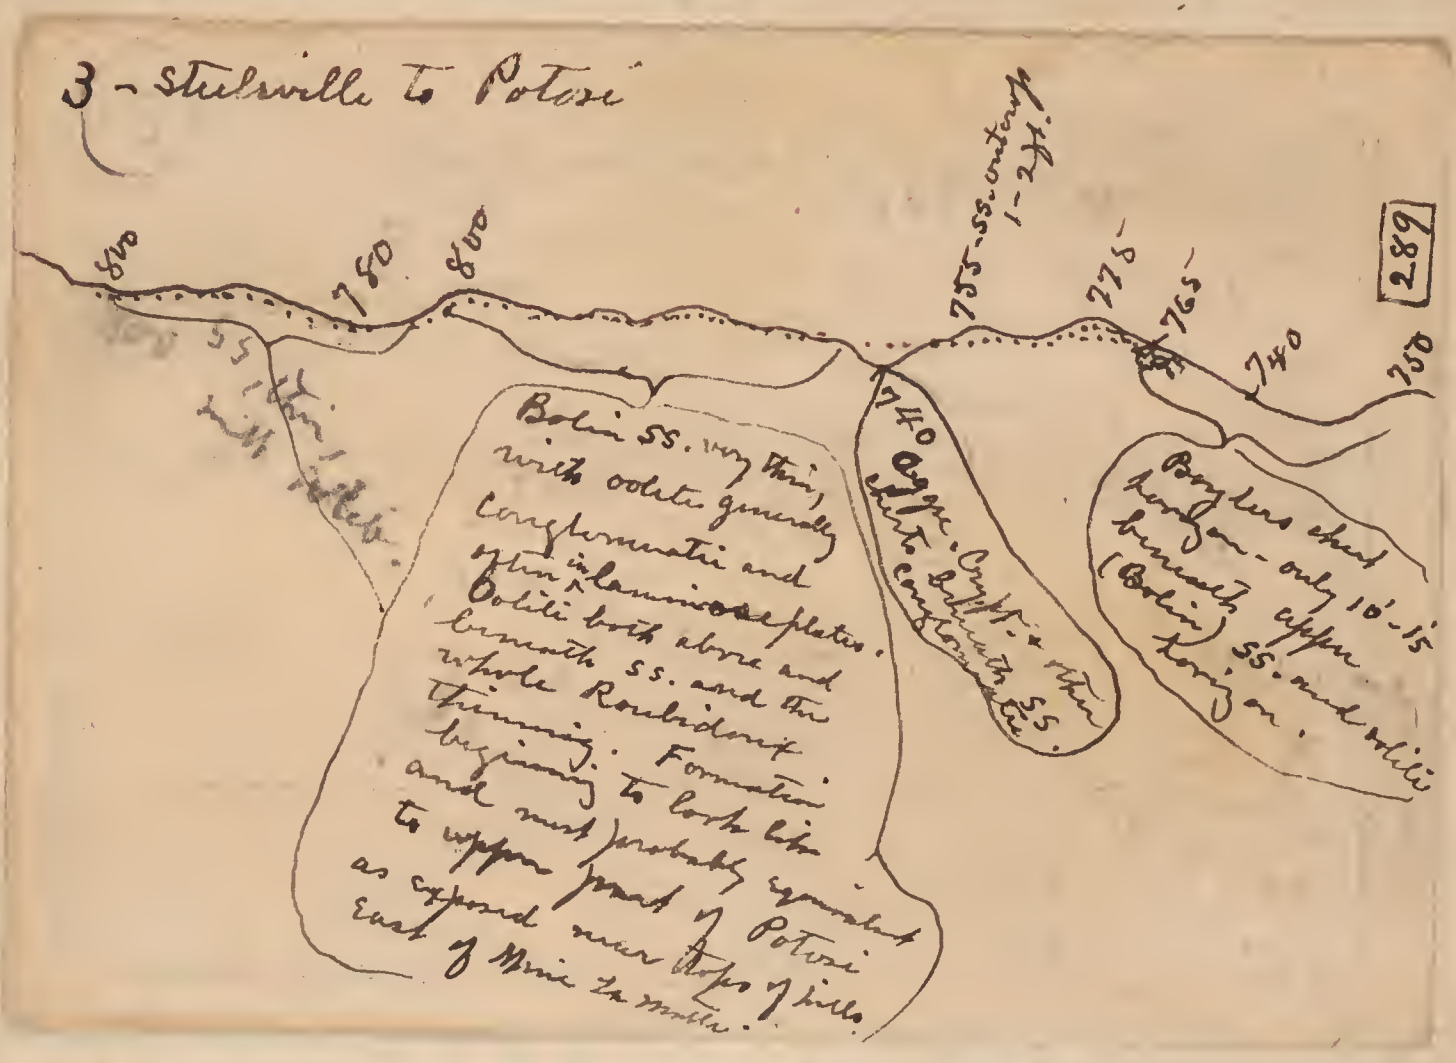 3 - Steelville to Potosi
800
780
800
755-ss. outcrop
1-2 ft.
775
765
740
750
289
ss, thin,
with
Bolin ss. very thin,
with oolite generally
Conglomeratic and
often in laminose plates.
Oolite both above and
beneath ss. and the
whole Roubidoux
thinning. Formation
beginning to look like
and most probably equivalent
to upper part of Potosi
as exposed near tops of hills
East of Mine La Motte.
740 Aggre. Crypt. & other
cherts beneath ss.
conglomeratic
Boyders chert
horizon - only 10'-15
beneath upper
(Bolin) ss. and oolite
horizon.